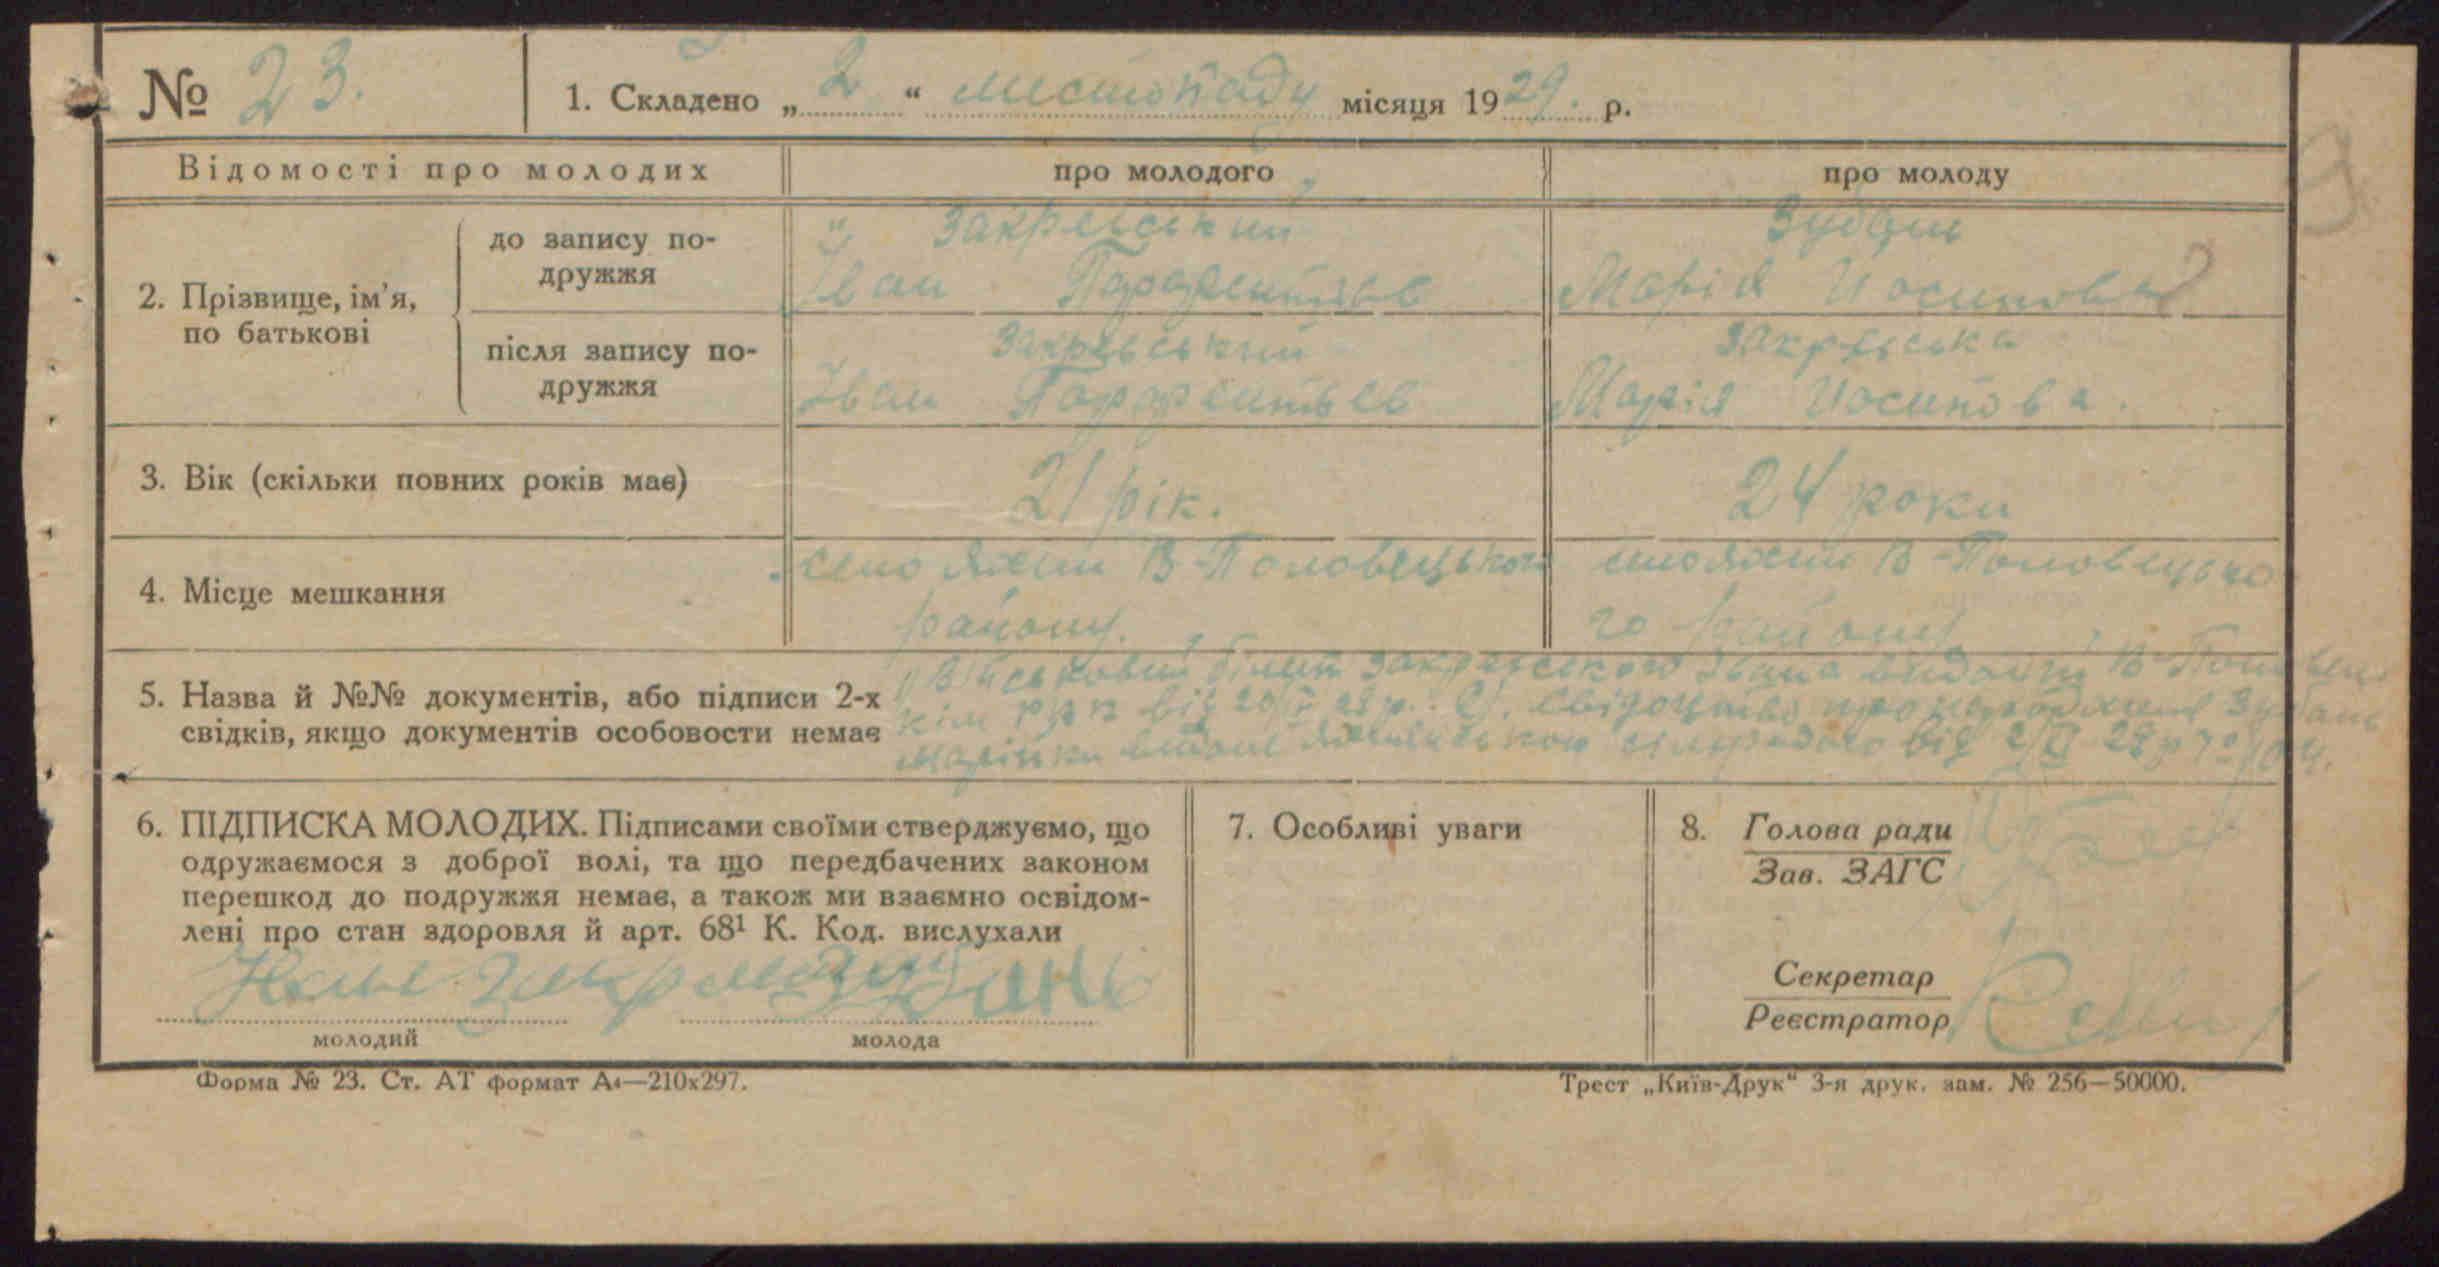 № 23.
1. Складено „ 2 “ листопаду місяця 1929. р.
Відомості про молодих
про молодого
про молоду
2. Прізвище, ім’я, по батькові
до запису по-
дружжя
Закревський
Іван Парфентьев
Зубань
Марія Иосипова
після запису по-
дружжя
Закревський
Іван Парфентьев
Закревська
Марія Иосипова.
3. Вік (скільки повних років має)
21 рік.
24 роки
4. Місце мешкання
село Яхни В-Половецького
району.
село Яхни В-Половецько
го району
5. Назва й №№ документів, або підписи 2-х
свідків, якщо документів особовости немає
1) Військовий білет Закревського Івана виданий В-Половец.
від 28 р. 2). Свідоцтво про народження Зубань
Марійки видане сільрадою від 2/XI 29 р № 104.
6. ПІДПИСКА МОЛОДИХ. Підписами своїми стверджуємо, що
одружаємося з доброї волі, та що передбачених законом
перешкод до подружжя немає, а також ми взаємно освідом-
лені про стан здоровля й арт. 68¹ К. Код. вислухали
Зубань
молодий
молода
7. Особливі уваги
8. Голова ради
Зав. ЗАГС
Секретар
Реєстратор
Форма № 23. Ст. АТ формат А₄—210х297.
Трест „Київ-Друк“ 3-я друк. зам. № 256—50000.